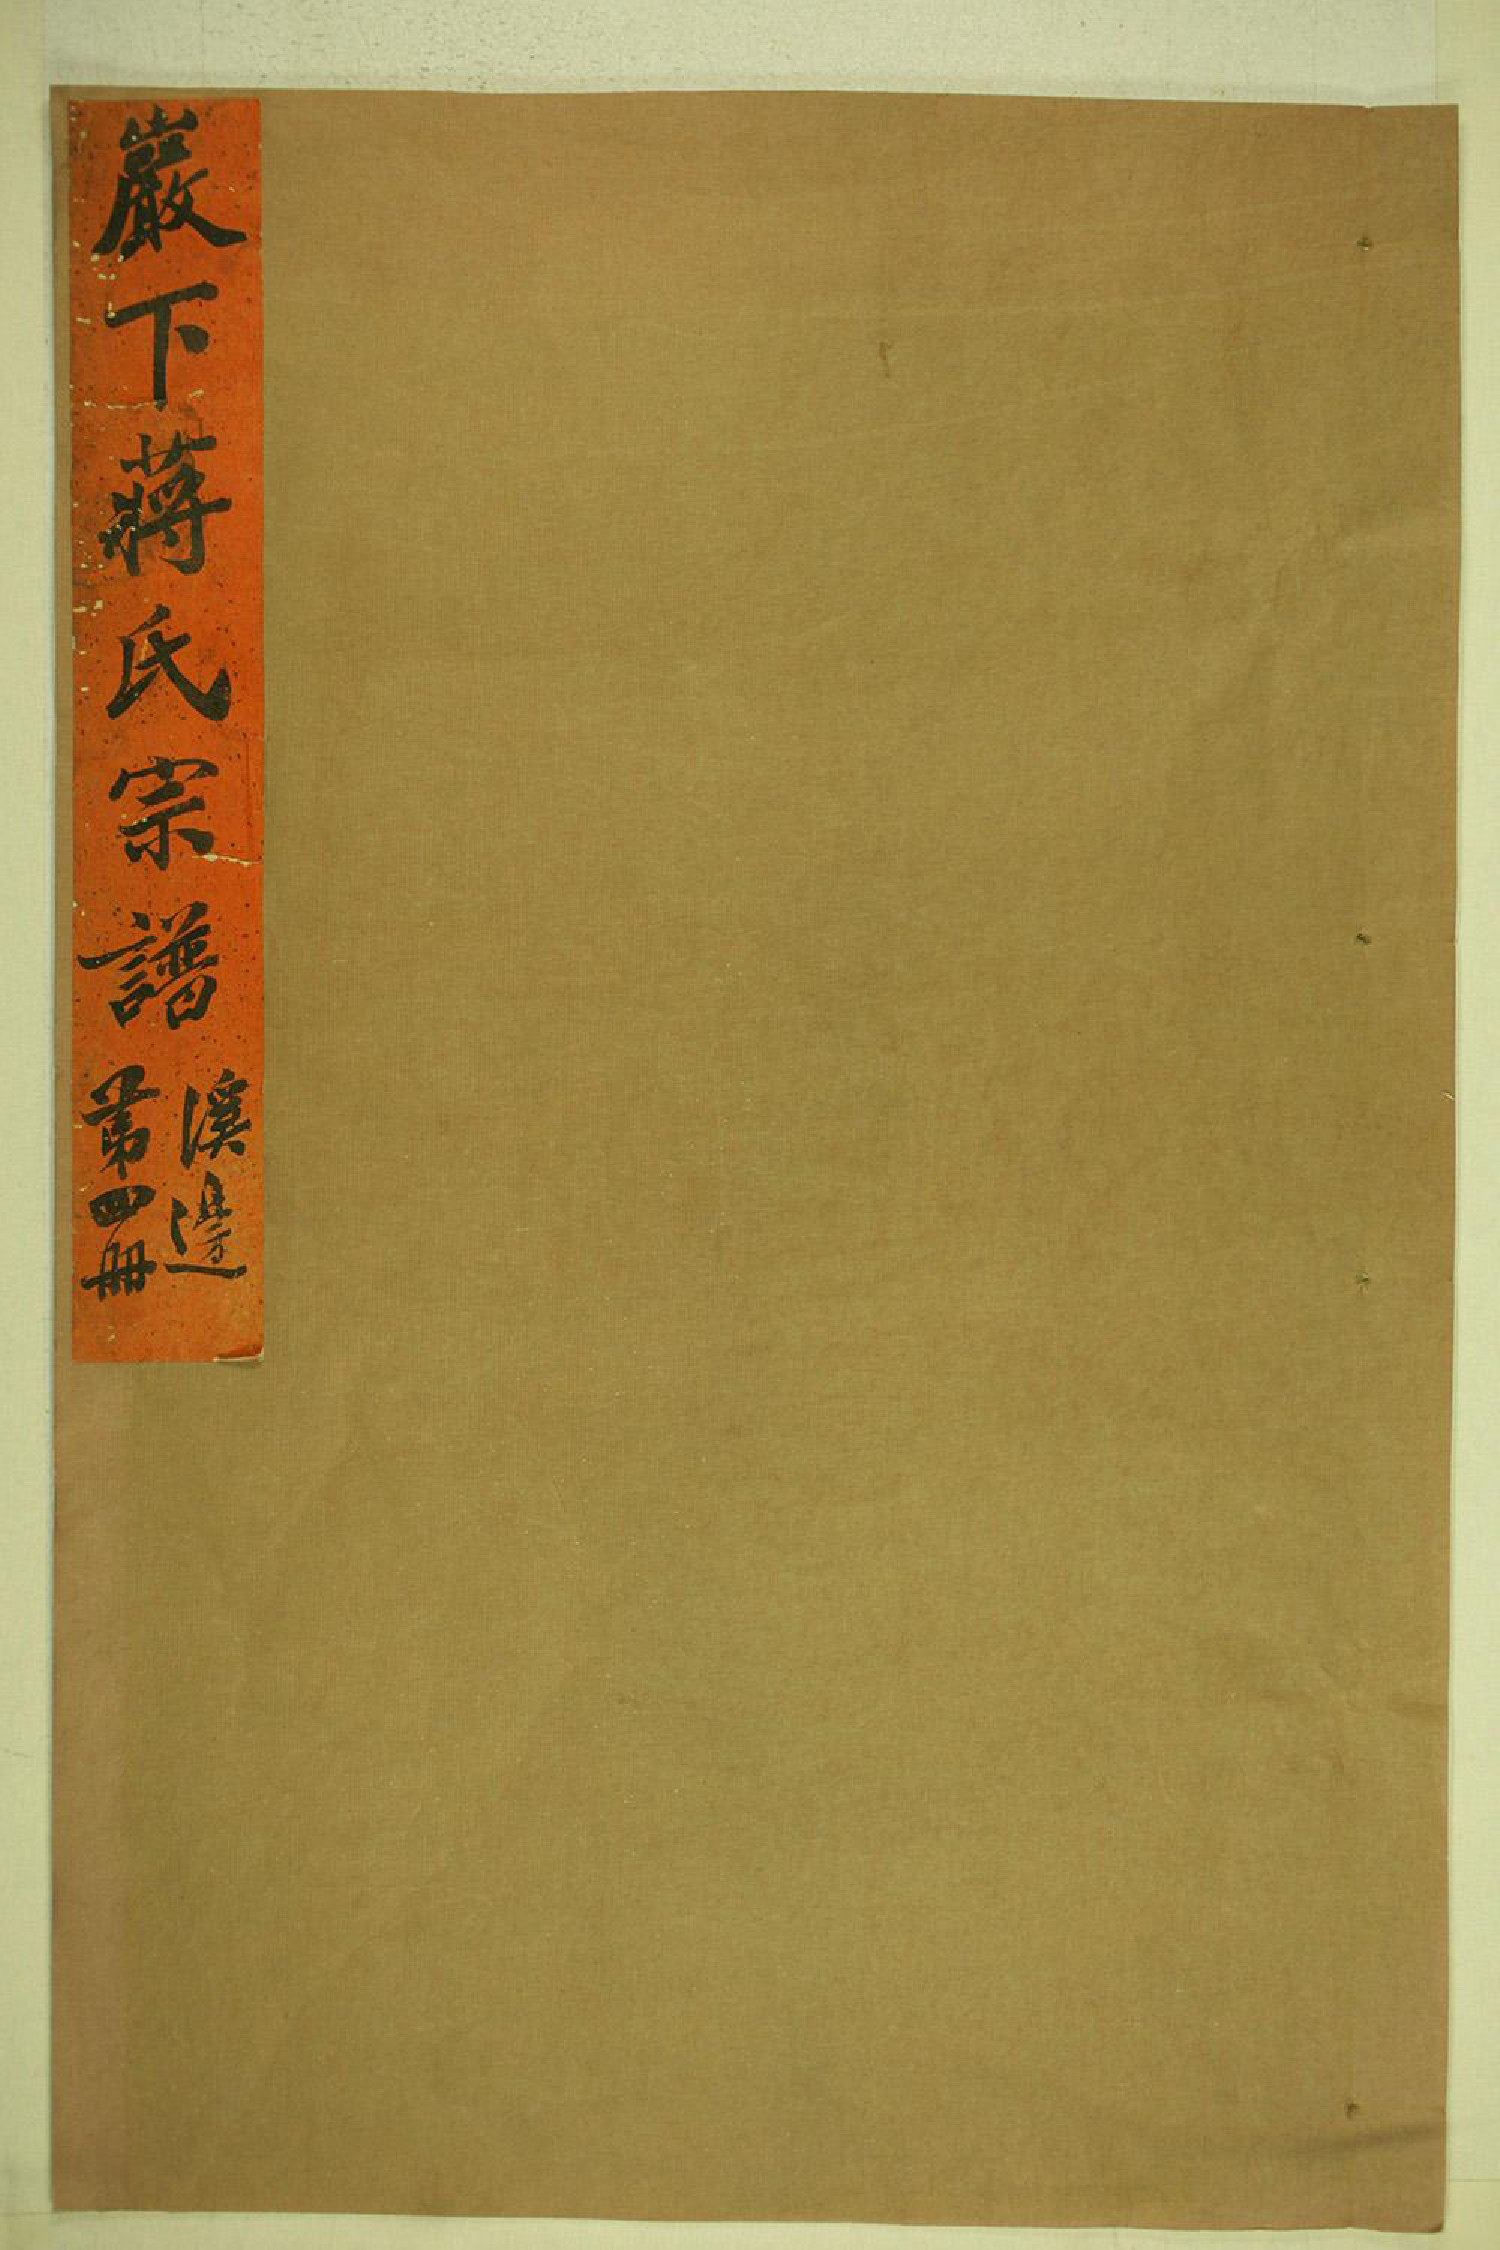 巖下蔣氏宗譜
溪邊
第四冊